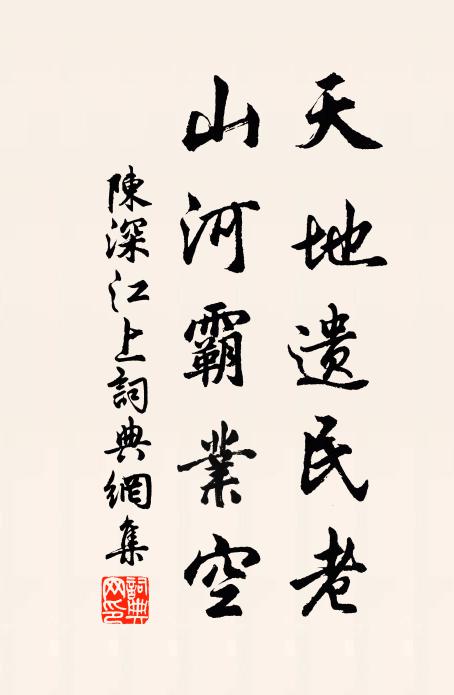 天地遺民老
山河霸業空
陳深江上詞典網集
詞典网印